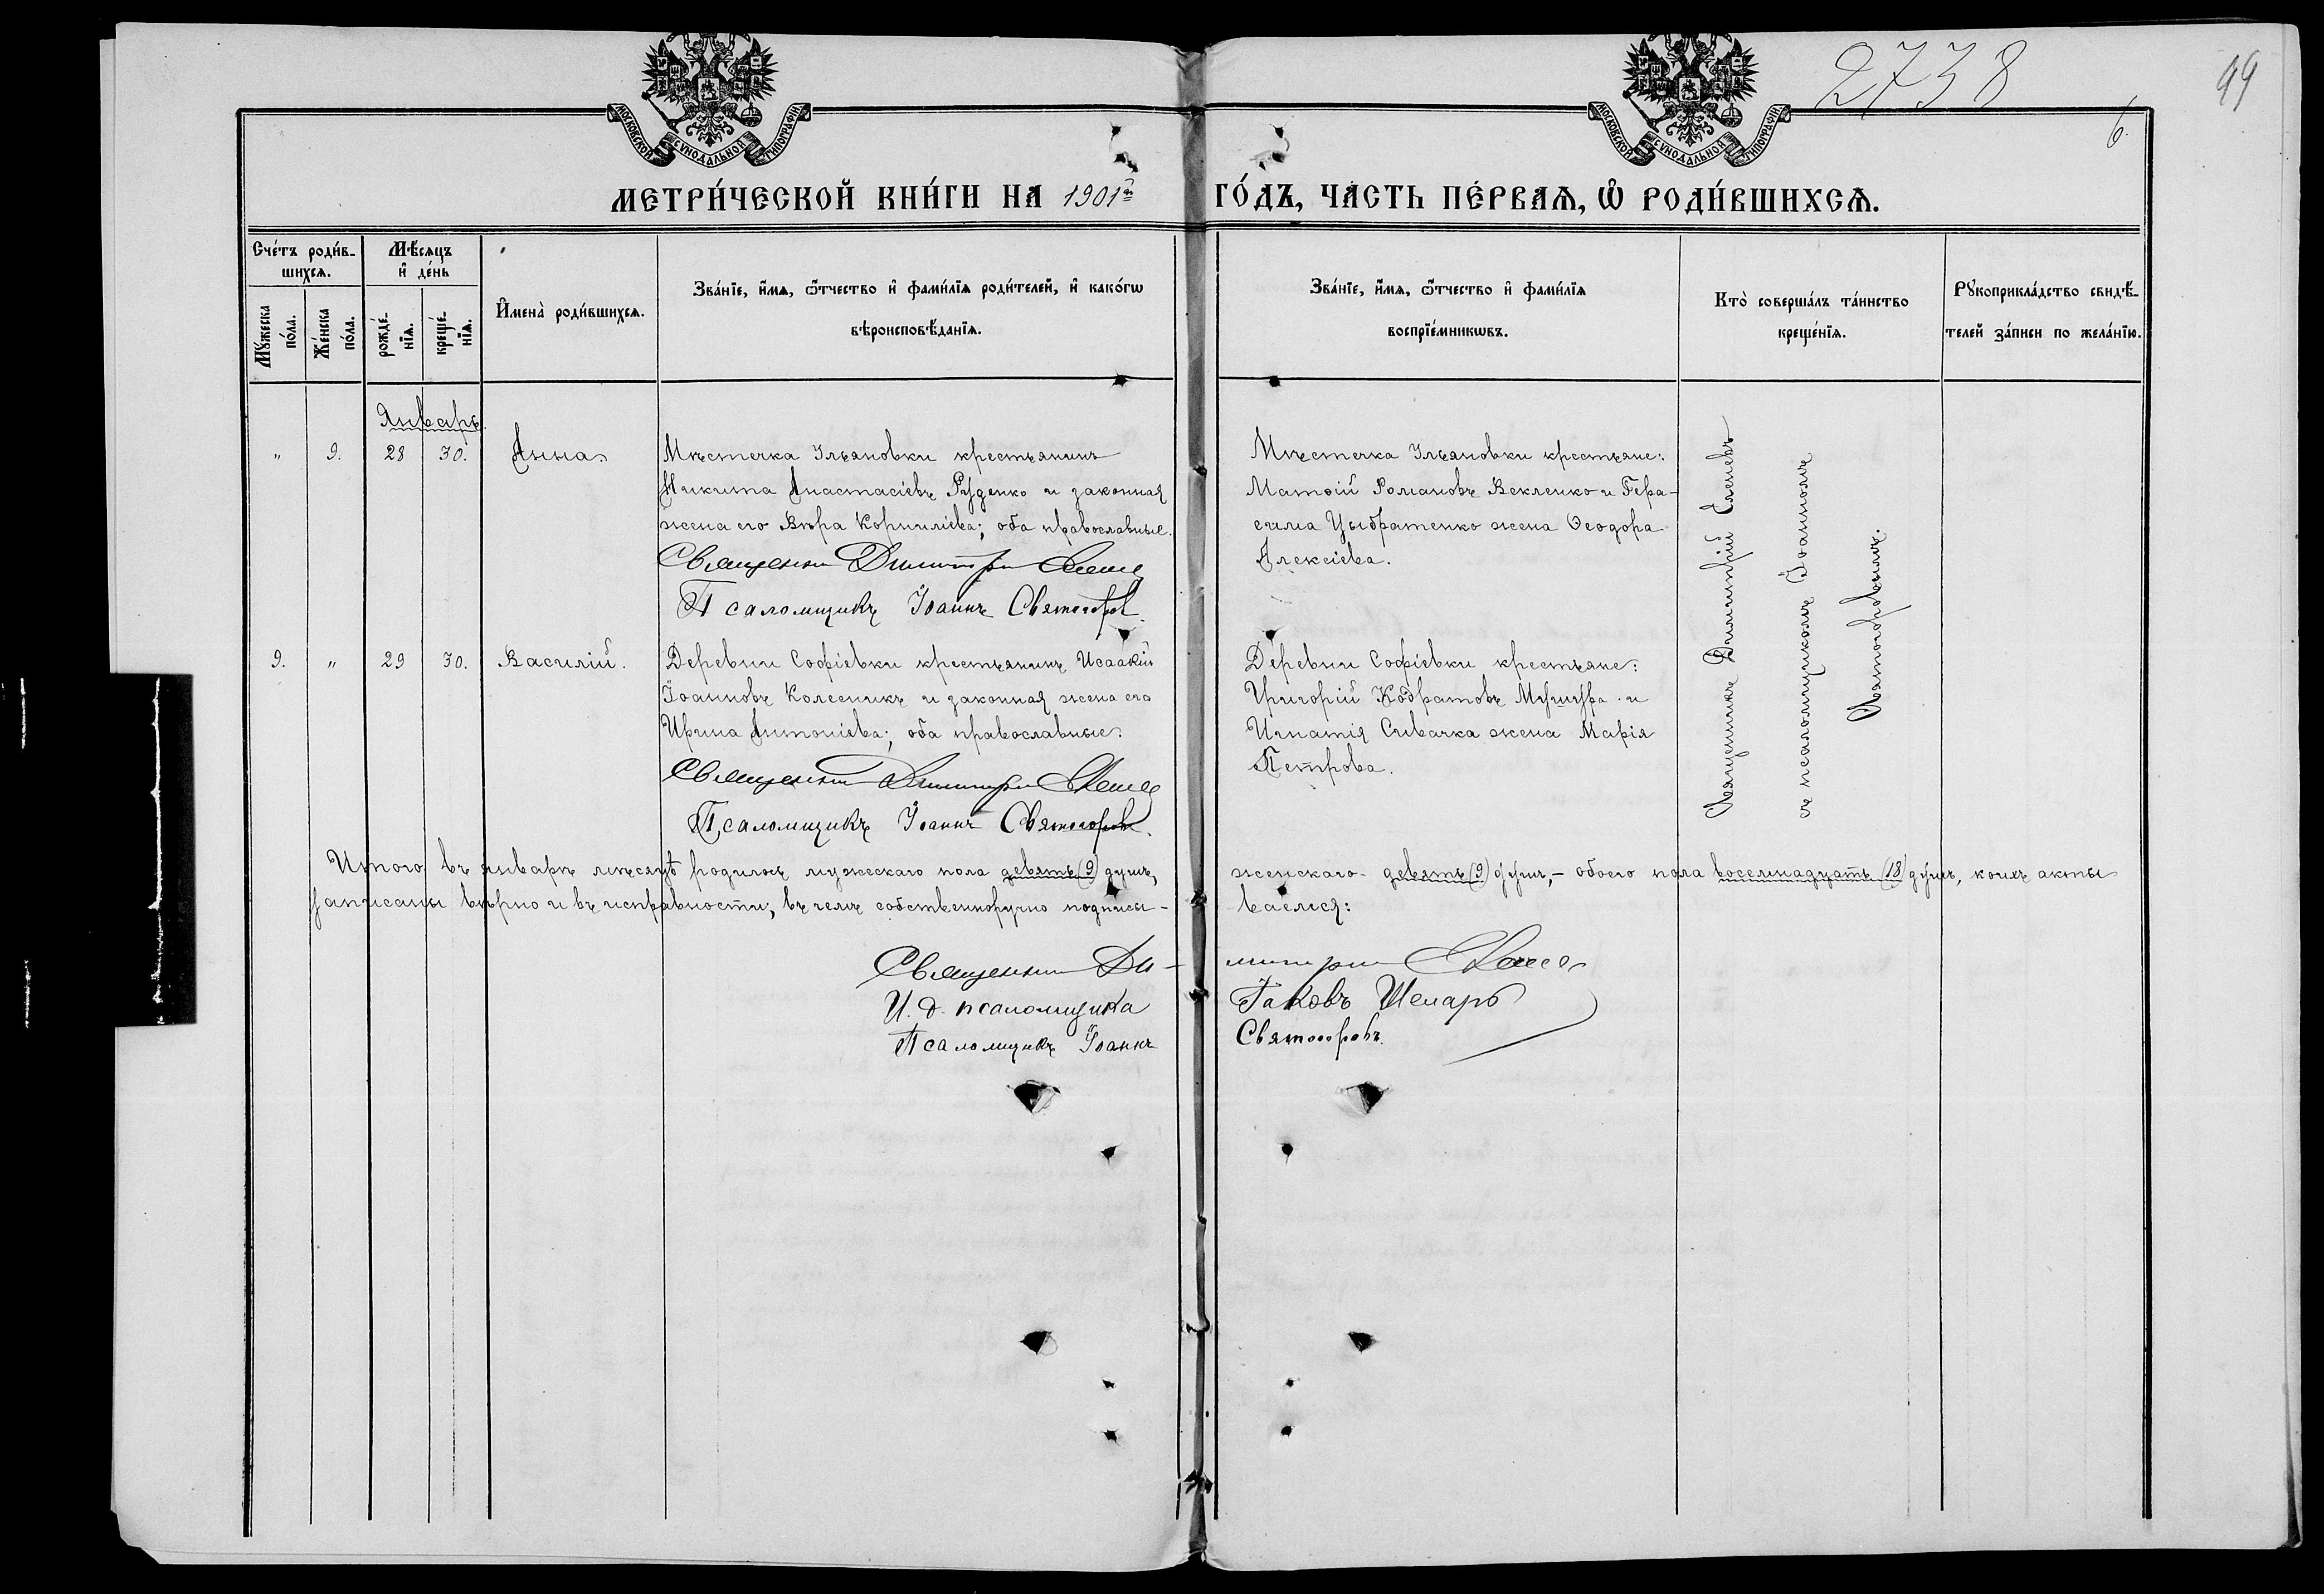 2738
99
6.
МОСКОВСКОЙ СѴНОДАЛЬНОЙ ТИПОГРАФІИ
МОСКОВСКОЙ СѴНОДАЛЬНОЙ ТИПОГРАФІИ
МЕТРИ́ЧЕСКОЙ КНИ́ГИ НА 1901й ГО́ДЪ, ЧА́СТЬ ПЕ́РВАѦ, Ѽ РОДИ́ВШИХСѦ.
Сче́тъ роди́в-
шихсѧ.
Мꙋ́жеска
по́ла.
Же́нска
по́ла.
Мѣ́сѧцъ
и҆ де́нь
рожде́-
нїѧ.
креще́-
нїѧ.
И҆мена̀ роди́вшихсѧ.
Зва́нїе, и҆́мѧ, ѻ҆́тчество и҆ фами́лїѧ роди́телей, и҆ како́гѡ
вѣроисповѣ́данїѧ.
Зва́нїе, и҆́мѧ, ѻ҆́тчество и҆ фами́лїѧ
воспрїе́мникѡвъ.
Кто̀ соверша́лъ та́инство
креще́нїѧ.
Рꙋкоприкла́дство свидѣ́-
телей за́писи по жела́нїю.
Январь.
" 9. 28 30. Анна.
Мѣстечка Ульяновки крестьянинъ
Никита Анастасіевъ Руденко и законная
жена его Вѣра Корниліева; оба православные.
Священникъ Димитрій
Псаломщикъ Іоаннъ Святогоровъ.
Мѣстечка Ульяновки крестьяне:
Матѳій Романовъ Векленко и Гера-
сима Цыбратенко жена Ѳеодора
Алексіева.
9. " 29 30. Василій.
Деревни Софіевки крестьянинъ Исаакій
Іоанновъ Колесникъ и законная жена его
Ирина Антоніева; оба православные.
Священникъ Димитрій
Псаломщикъ Іоаннъ Святогоровъ.
Деревни Софіевки крестьяне:
Григорій Кодратовъ Мушура и
Игнатія Сивачка жена Марія
Петрова.
Священникъ Димитрій
съ псаломщикомъ Іоанномъ
Святогоровымъ.
Итого въ январѣ мѣсяцѣ родилось мужескаго пола девять (9) душъ, женскаго - девять (9) душъ, - обоего пола восемнадцать (18) душъ, коихъ акты
записаны вѣрно и въ исправности; въ чемъ собственноручно подписы- ваемся:
Священникъ Ди- митрій
И. д. псаломщика Іаковъ
Псаломщикъ Іоаннъ Святогоровъ.